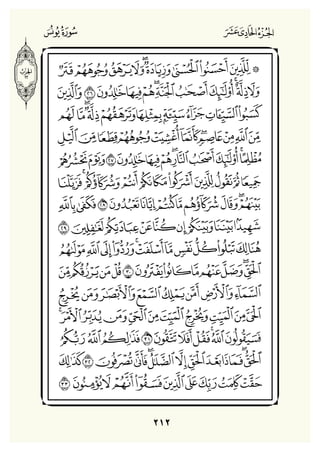 سُورَةُ يُونُسَ
الجُزْءُ الحَادِيَ عَشَرَ
۞ لِّلَّذِينَ أَحْسَنُوا۟ ٱلْحُسْنَىٰ وَزِيَادَةٌ ۖ وَلَا يَرْهَقُ وُجُوهَهُمْ قَتَرٌ
وَلَا ذِلَّةٌ ۚ أُو۟لَٰٓئِكَ أَصْحَٰبُ ٱلْجَنَّةِ ۖ هُمْ فِيهَا خَٰلِدُونَ ٢٦ وَٱلَّذِينَ
كَسَبُوا۟ ٱلسَّيِّـَٔاتِ جَزَآءُ سَيِّئَةٍۭ بِمِثْلِهَا وَتَرْهَقُهُمْ ذِلَّةٌ ۖ مَّا لَهُم
مِّنَ ٱللَّهِ مِنْ عَاصِمٍ ۖ كَأَنَّمَآ أُغْشِيَتْ وُجُوهُهُمْ قِطَعًا مِّنَ ٱلَّيْلِ
مُظْلِمًا ۚ أُو۟لَٰٓئِكَ أَصْحَٰبُ ٱلنَّارِ ۖ هُمْ فِيهَا خَٰلِدُونَ ٢٧ وَيَوْمَ نَحْشُرُهُمْ
جَمِيعًا ثُمَّ نَقُولُ لِلَّذِينَ أَشْرَكُوا۟ مَكَانَكُمْ أَنتُمْ وَشُرَكَآؤُكُمْ ۚ فَزَيَّلْنَا
بَيْنَهُمْ ۖ وَقَالَ شُرَكَآؤُهُم مَّا كُنتُمْ إِيَّانَا تَعْبُدُونَ ٢٨ فَكَفَىٰ بِٱللَّهِ
شَهِيدًۢا بَيْنَنَا وَبَيْنَكُمْ إِن كُنَّا عَنْ عِبَادَتِكُمْ لَغَٰفِلِينَ ٢٩
هُنَالِكَ تَبْلُوا۟ كُلُّ نَفْسٍ مَّآ أَسْلَفَتْ ۚ وَرُدُّوٓا۟ إِلَى ٱللَّهِ مَوْلَىٰهُمُ
ٱلْحَقِّ ۖ وَضَلَّ عَنْهُم مَّا كَانُوا۟ يَفْتَرُونَ ٣٠ قُلْ مَن يَرْزُقُكُم مِّنَ
ٱلسَّمَآءِ وَٱلْأَرْضِ أَمَّن يَمْلِكُ ٱلسَّمْعَ وَٱلْأَبْصَٰرَ وَمَن يُخْرِجُ
ٱلْحَىَّ مِنَ ٱلْمَيِّتِ وَيُخْرِجُ ٱلْمَيِّتَ مِنَ ٱلْحَىِّ وَمَن يُدَبِّرُ ٱلْأَمْرَ ۚ
فَسَيَقُولُونَ ٱللَّهُ ۚ فَقُلْ أَفَلَا تَتَّقُونَ ٣١ فَذَٰلِكُمُ ٱللَّهُ رَبُّكُمُ
ٱلْحَقُّ ۖ فَمَاذَا بَعْدَ ٱلْحَقِّ إِلَّا ٱلضَّلَٰلُ ۖ فَأَنَّىٰ تُصْرَفُونَ ٣٢ كَذَٰلِكَ
حَقَّتْ كَلِمَتُ رَبِّكَ عَلَى ٱلَّذِينَ فَسَقُوٓا۟ أَنَّهُمْ لَا يُؤْمِنُونَ ٣٣
٢١٢